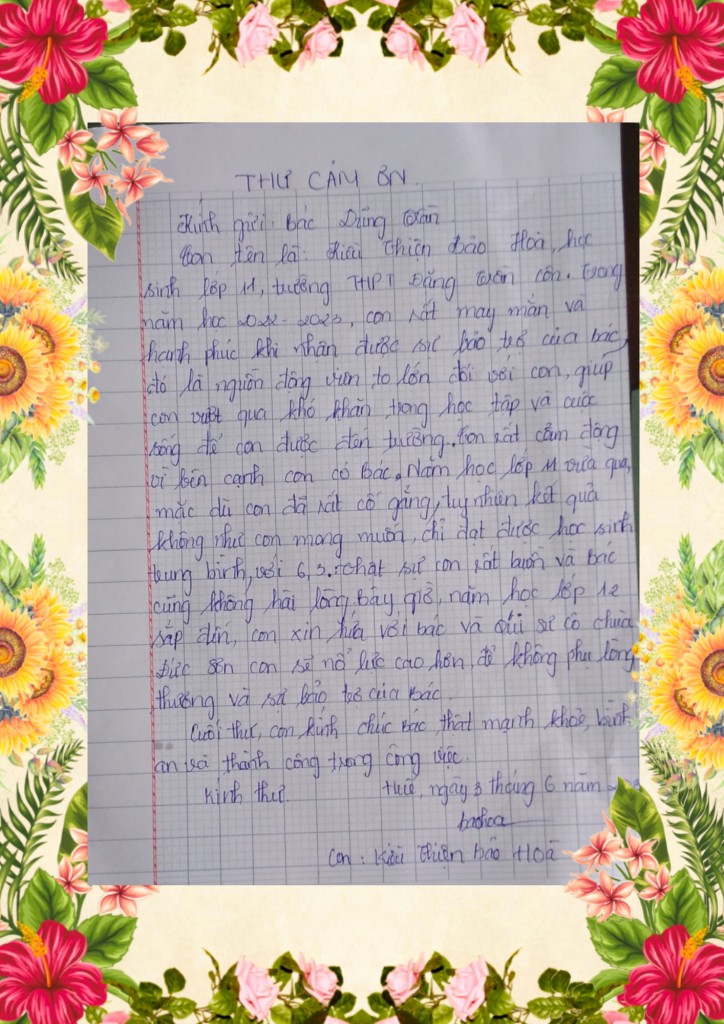 THƯ CẢM ƠN.
Kính gửi: Bác Dũng Trần
Con tên là: Kiều Thiện Bảo Hoà, học
sinh lớp 11, trường THPT Đặng Trần Côn. Trong
năm học 2022-2023, con rất may mắn và
hạnh phúc khi nhận được sự bảo trợ của bác,
đó là nguồn động viên to lớn đối với con, giúp
con vượt qua khó khăn trong học tập và cuộc
sống để con được đến trường. Con rất cảm động
vì bên cạnh con có Bác. Năm học lớp 11 vừa qua,
mặc dù con đã rất cố gắng, tuy nhiên kết quả
không như con mong muốn, chỉ đạt được học sinh
trung bình, với 6,3. Thật sự con rất buồn và Bác
cũng không hài lòng. Bây giờ, năm học lớp 12
sắp đến, con xin hứa với bác và quí sư cô chùa
Đức Sơn con sẽ nổ lực cao hơn, để không phụ lòng
thương và sự bảo trợ của Bác.
Cuối thư, con kính chúc Bác thật mạnh khoẻ, bình
an và thành công trong công việc.
Kính thư. Huế, ngày 3 tháng 6 năm
baohoa
Con: Kiều Thiện Bảo Hoà